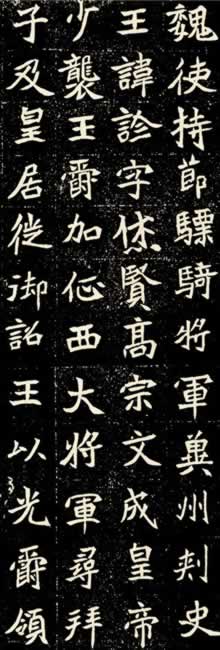 魏使持節驃騎將軍冀州刺史
王諱詮字休賢高宗文成皇帝
少襲王爵加征西大將軍尋拜
子及皇居徙御詔王以光爵領